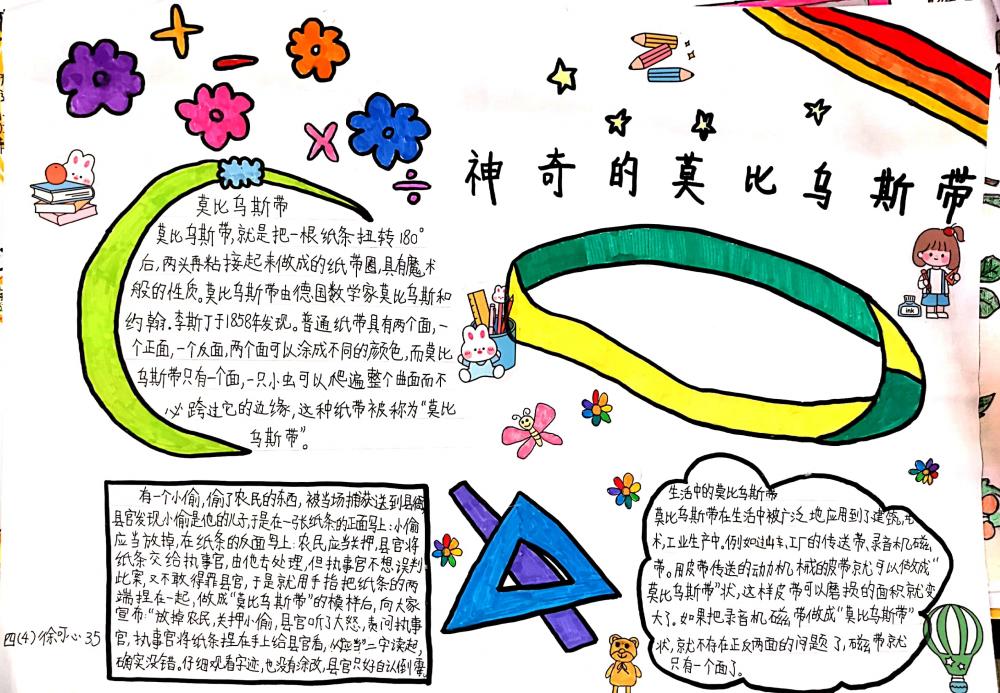 神奇的莫比乌斯带
莫比乌斯带
莫比乌斯带,就是把一根纸条扭转180°
后,两头再粘接起来做成的纸带圈,具有魔术
般的性质。莫比乌斯带由德国数学家莫比乌斯和
约翰.李斯丁于1858年发现。普通纸带具有两个面,一
个正面,一个反面,两个面可以涂成不同的颜色,而莫比
乌斯带只有一个面,一只小虫可以爬遍整个曲面而不
必跨过它的边缘,这种纸带被称为“莫比
乌斯带”。
ink
有一个小偷,偷了农民的东西,被当场捕获送到县衙
县官发现小偷是他的儿子,于是在一张纸条的正面写上:小偷
应当放掉,在纸条的反面写上:农民应当关押,县官将
纸条交给执事官,由他去处理,但执事官不想误判
此案,又不敢得罪县官,于是就用手指把纸条的两
端捏在一起,做成“莫比乌斯带”的模样后,向大家
宣布:“放掉农民,关押小偷,县官听了大怒,责问执事
官,执事官将纸条捏在手上给县官看,从应当二字读起,
确实没错。仔细观看字迹,也没有涂改,县官只好自认倒霉
生活中的莫比乌斯带
莫比乌斯带在生活中被广泛地应用到了建筑,艺
术,工业生产中。例如过山车,工厂的传送带、录音机磁
带。用皮带传送的动力机械的皮带就可以做成“
莫比乌斯带”状,这样皮带可以磨损的面积就变
大了。如果把录音机磁带做成“莫比乌斯带”
状,就不存在正反两面的问题了,磁带就
只有一个面了。
四(4)徐可心35